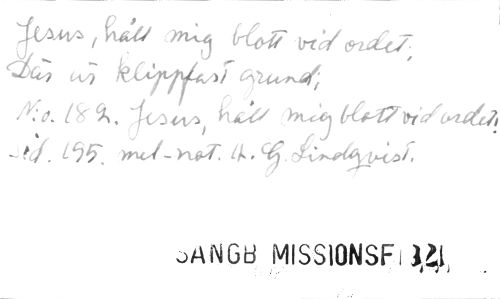 Jesus, håll mig blott vid ordet;
Där är klippfast grund;
N:o. 182. Jesus, håll mig blott vid ordet:
sid. 195. mel-not. A. G. Lindqvist.
SANGB MISSIONSF 1321